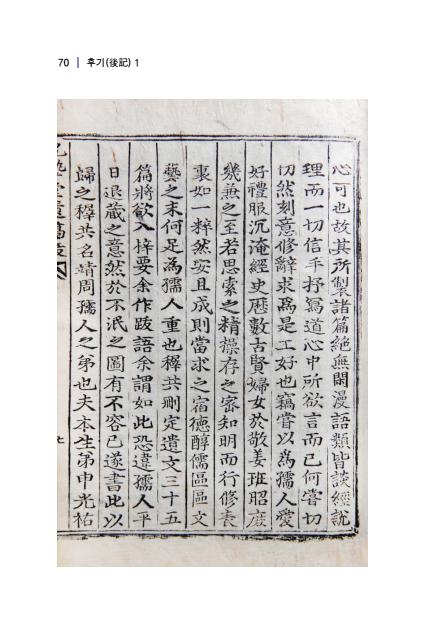 70 | 후기(後記) 1
心可也故其所製諸篇絶無閑漫語類皆談經說
理而一切信手抒寫道心中所欲言而已何嘗切
切然刻意修辭求爲是工好也竊嘗以爲孺人愛
好禮服沉淹經史歷數古賢婦女於敬姜班昭庶
幾兼之至若思索之精操存之密知明而行修表
裏如一粹然安且成則當求之宿德醇儒區區文
藝之末何足爲孺人重也穉共刪定遺文三十五
篇將欲入梓要余作跋語余謂如此恐違孺人平
日退藏之意然於不泯之圖有不容已遂書此以
歸之穉共名靖周孺人之弟也夫本生弟申光祐